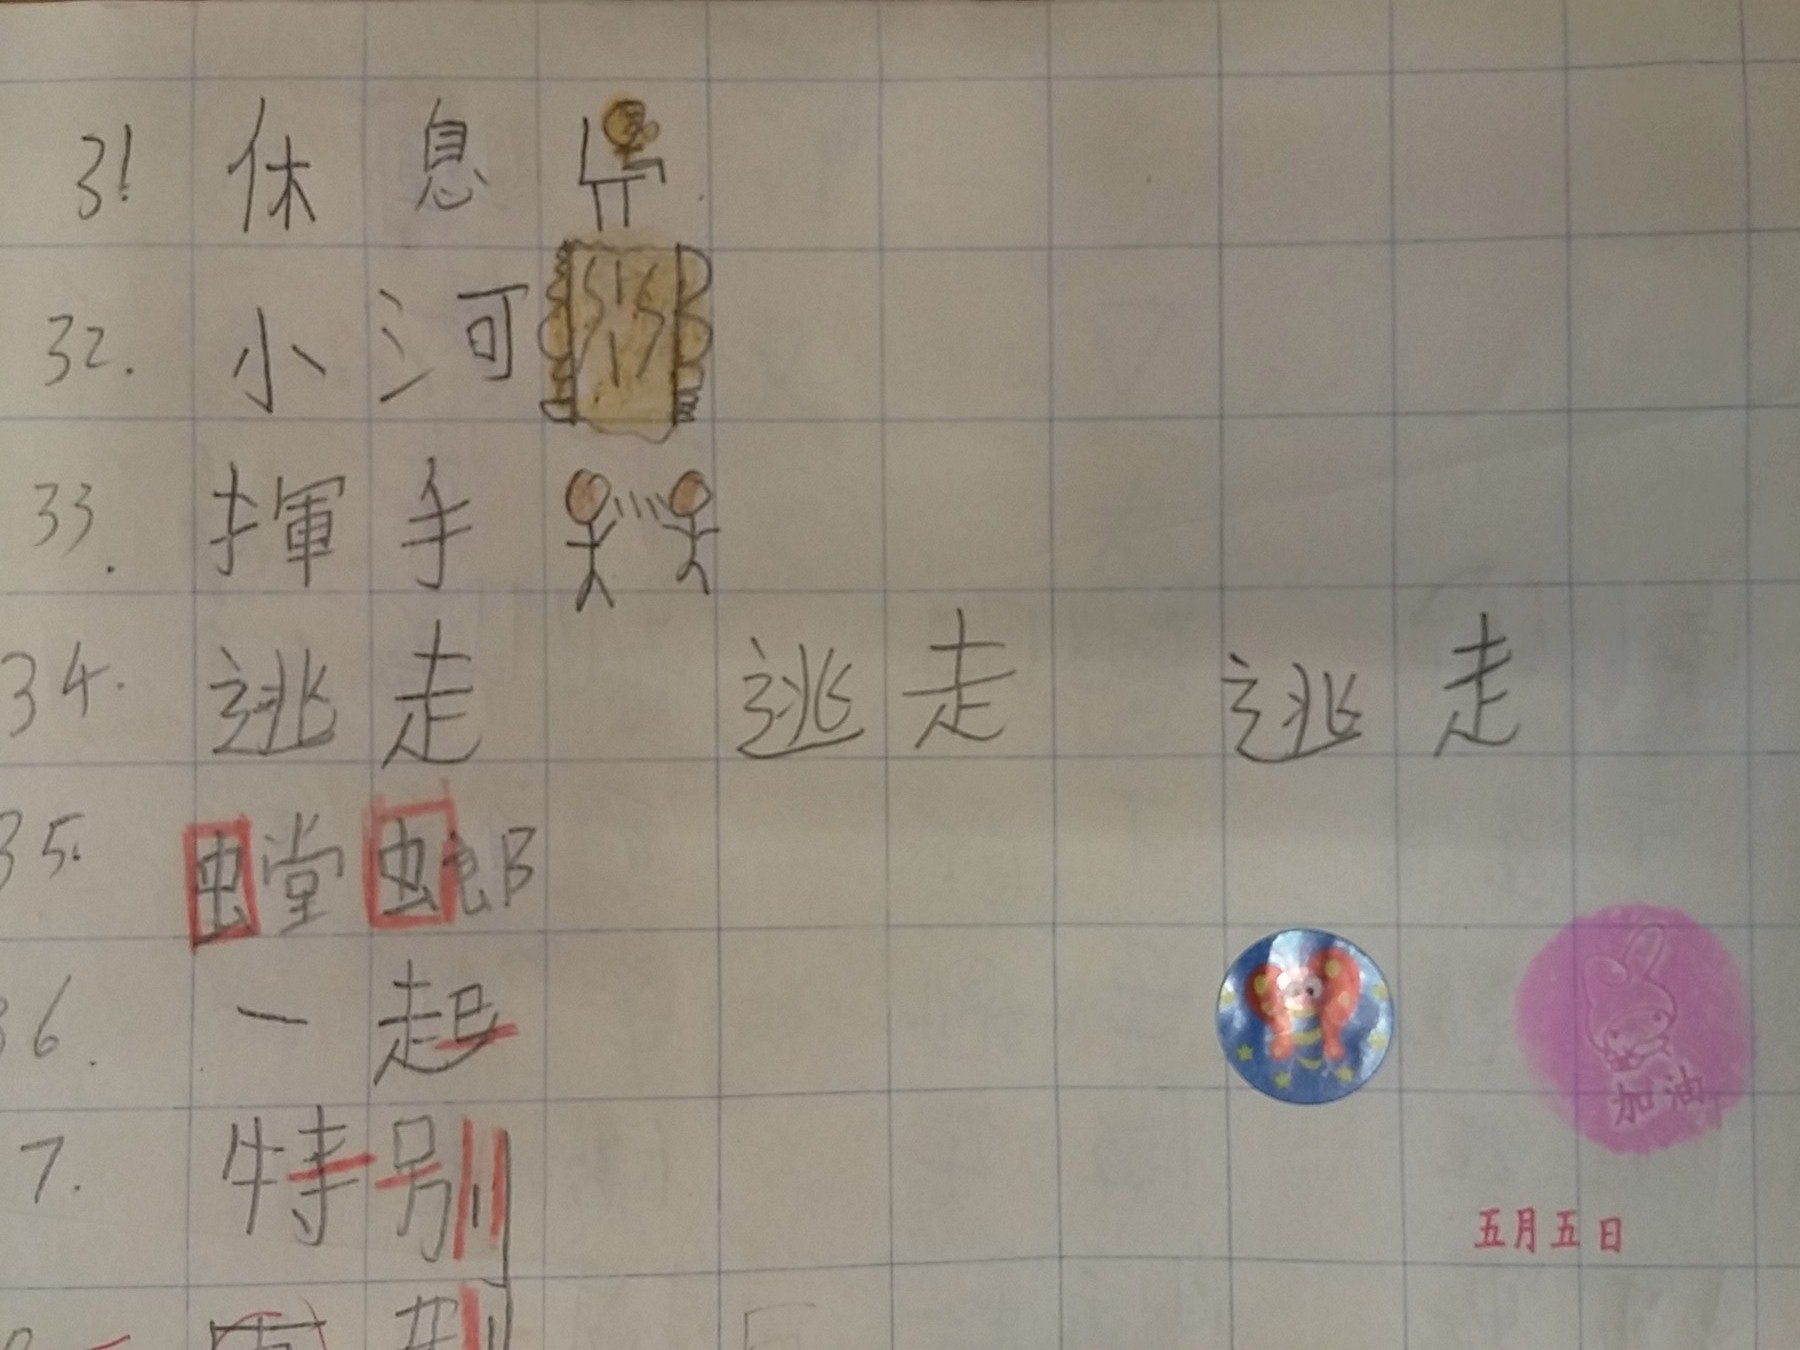 31 休息
32. 小河
33. 揮手
34. 逃走 逃走 逃走
35. 螳螂
36. 一起
7. 特別
加油
五月五日